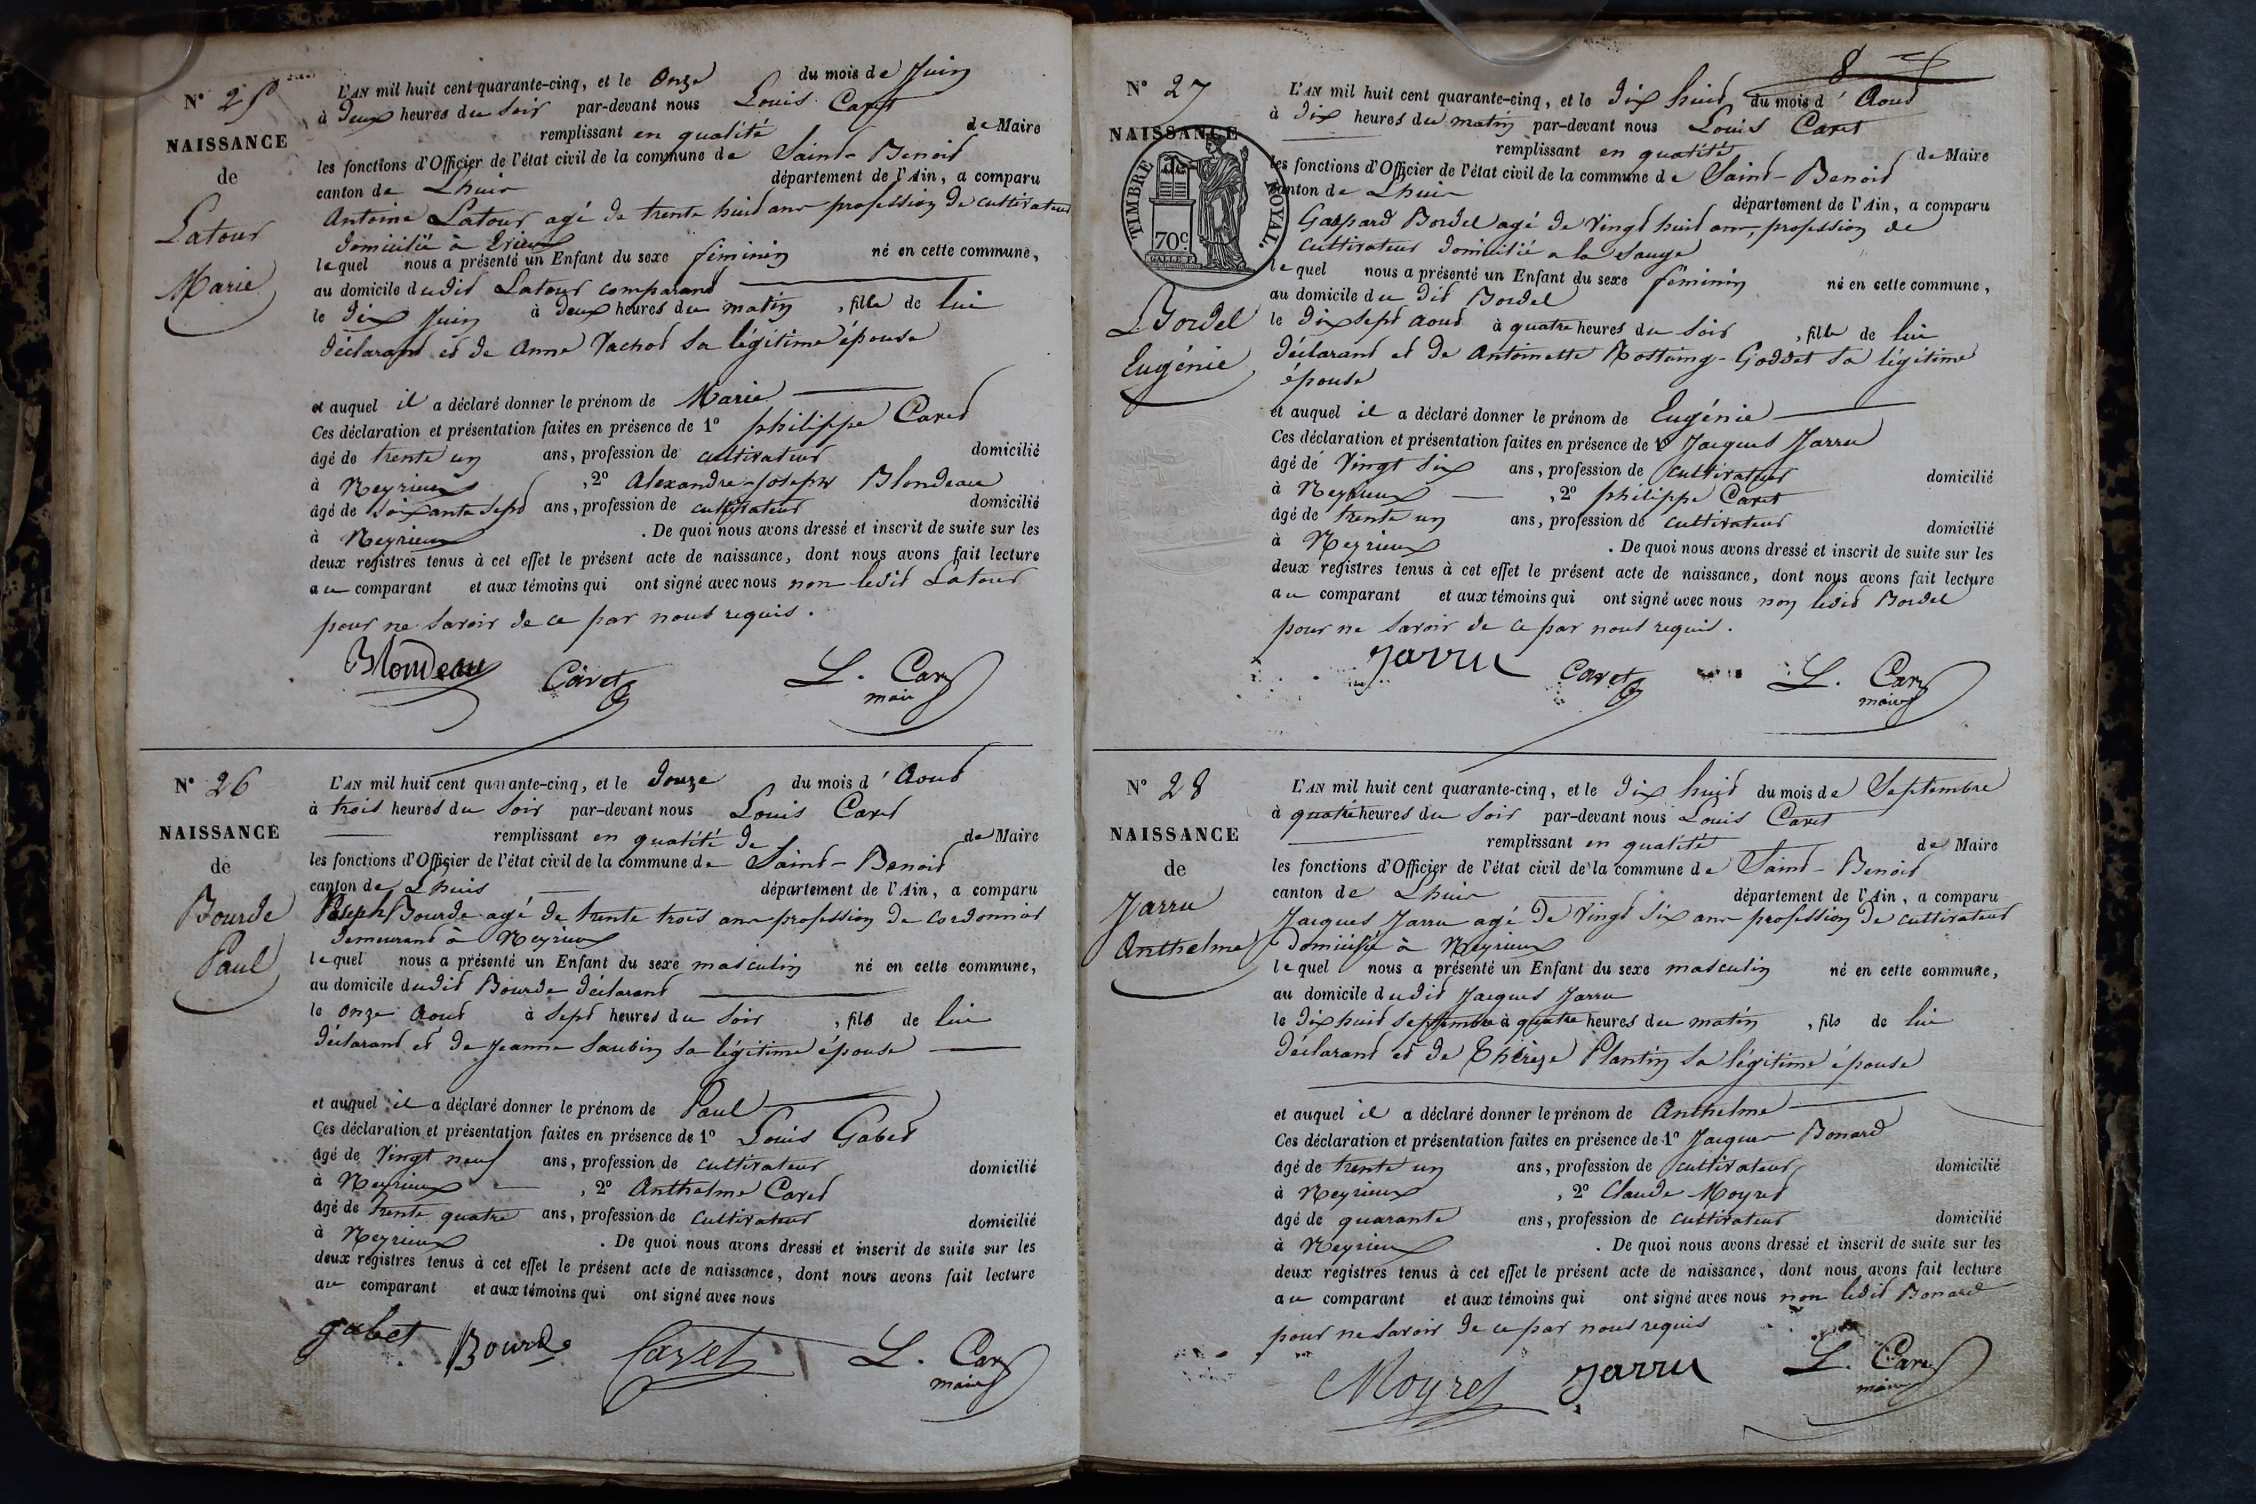 N° 25
NAISSANCE
de
Latour
Marie
L'AN mil huit cent quarante-cinq, et le Onze du mois de Juin
à Deux heures du Soir par-devant nous Louis Caret
remplissant en qualité de Maire
les fonctions d'Officier de l'état civil de la commune de Saint-Benoit
canton de Lhuis département de l'Ain, a comparu
Antoine Latour agé de trente huit ans profession de cultivateur
domicilié à
lequel nous a présenté un Enfant du sexe féminin né en cette commune,
au domicile dudit Latour comparant
le dix Juin à deux heures du matin, fille de lui
déclarant et de Anne Vachod sa légitime épouse
et auquel il a déclaré donner le prénom de Marie
Ces déclaration et présentation faites en présence de 1° philippe Caret
âgé de trente un ans, profession de cultivateur domicilié
à Neyrieux, 2° Alexandre-Joseph Blondeau
âgé de soixante sept ans, profession de cultivateur domicilié
à Neyrieux. De quoi nous avons dressé et inscrit de suite sur les
deux registres tenus à cet effet le présent acte de naissance, dont nous avons fait lecture
au comparant et aux témoins qui ont signé avec nous non ledit Latour
pour ne savoir de ce par nous requis.
Blondeau Caret L. Caret
maire
N° 26
NAISSANCE
de
Bourde
Paul
L'AN mil huit cent quarante-cinq, et le douze du mois d'Aout
à trois heures du Soir par-devant nous Louis Caret
remplissant en qualité de de Maire
les fonctions d'Officier de l'état civil de la commune de Saint-Benoit
canton de Lhuis département de l'Ain, a comparu
Joseph Bourde agé de trente trois ans profession de cordonnier
demeurant à Neyrieux
lequel nous a présenté un Enfant du sexe masculin né en cette commune,
au domicile dudit Bourde déclarant
le onze Aout à sept heures du Soir, fils de lui
déclarant et de Jeanne Saubin sa légitime épouse
et auquel il a déclaré donner le prénom de Paul
Ces déclaration et présentation faites en présence de 1° Louis Gabet
âgé de vingt neuf ans, profession de cultivateur domicilié
à Neyrieux, 2° Anthelme Caret
âgé de trente quatre ans, profession de cultivateur domicilié
à Neyrieux. De quoi nous avons dressé et inscrit de suite sur les
deux registres tenus à cet effet le présent acte de naissance, dont nous avons fait lecture
au comparant et aux témoins qui ont signé avec nous
gabet Bourde Caret L. Caret
maire
8
N° 27
NAISSANCE
de
TIMBRE ROYAL.
70c.
Bordel
Eugénie
L'AN mil huit cent quarante-cinq, et le dix huit du mois d'Aout
à dix heures du matin par-devant nous Louis Caret
remplissant en qualité de Maire
les fonctions d'Officier de l'état civil de la commune de Saint-Benoit
canton de Lhuis département de l'Ain, a comparu
Gaspard Bordel agé de vingt huit ans, profession de
cultivateur domicilié a la Sauge
lequel nous a présenté un Enfant du sexe féminin né en cette commune,
au domicile du dit Bordel
le dix sept aout à quatre heures du Soir, fille de lui
déclarant et de Antoinette Rostaing-Goddet sa légitime
épouse
et auquel il a déclaré donner le prénom de Eugénie
Ces déclaration et présentation faites en présence de 1° Jacques Jarru
âgé de vingt six ans, profession de cultivateur domicilié
à Neyrieux, 2° philippe Caret
âgé de trente un ans, profession de cultivateur domicilié
à Neyrieux. De quoi nous avons dressé et inscrit de suite sur les
deux registres tenus à cet effet le présent acte de naissance, dont nous avons fait lecture
au comparant et aux témoins qui ont signé avec nous non ledit Bordel
pour ne savoir de ce par nous requis.
Jarru Caret L. Caret
maire
N° 28
NAISSANCE
de
Jarru
Anthelme
L'AN mil huit cent quarante-cinq, et le dix huit du mois de Septembre
à quatre heures du Soir par-devant nous Louis Caret
remplissant en qualité de Maire
les fonctions d'Officier de l'état civil de la commune de Saint-Benoit
canton de Lhuis département de l'Ain, a comparu
Jacques Jarru agé de vingt six ans profession de cultivateur
domicilié à Neyrieux
lequel nous a présenté un Enfant du sexe masculin né en cette commune,
au domicile dudit Jacques Jarru
le dix huit Septembre à quatre heures du matin, fils de lui
déclarant et de Thérèze Plantin sa légitime épouse
et auquel il a déclaré donner le prénom de Anthelme
Ces déclaration et présentation faites en présence de 1° Jacques Bonard
âgé de trente un ans, profession de cultivateur domicilié
à Neyrieux, 2° Claude Moyret
âgé de quarante ans, profession de cultivateur domicilié
à Neyrieux. De quoi nous avons dressé et inscrit de suite sur les
deux registres tenus à cet effet le présent acte de naissance, dont nous avons fait lecture
au comparant et aux témoins qui ont signé avec nous non ledit Bonard
pour ne savoir de ce par nous requis
Moyret Jarru L. Caret
maire